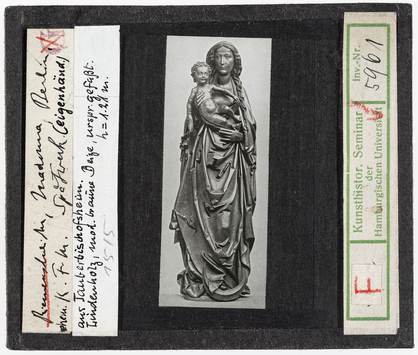 Riemenschneider, Madonna Berlin
ehem. K. F. M. Spätwerk (eigenhänd.)
aus Tauberbischofsheim.
Lindenholz, mod. braune Beize, urspr. gefaßt.
h = 1.21 m.
1515
Kunsthistor. Seminar
der
Hamburgischen Universität
Inv.-Nr.
5961
F